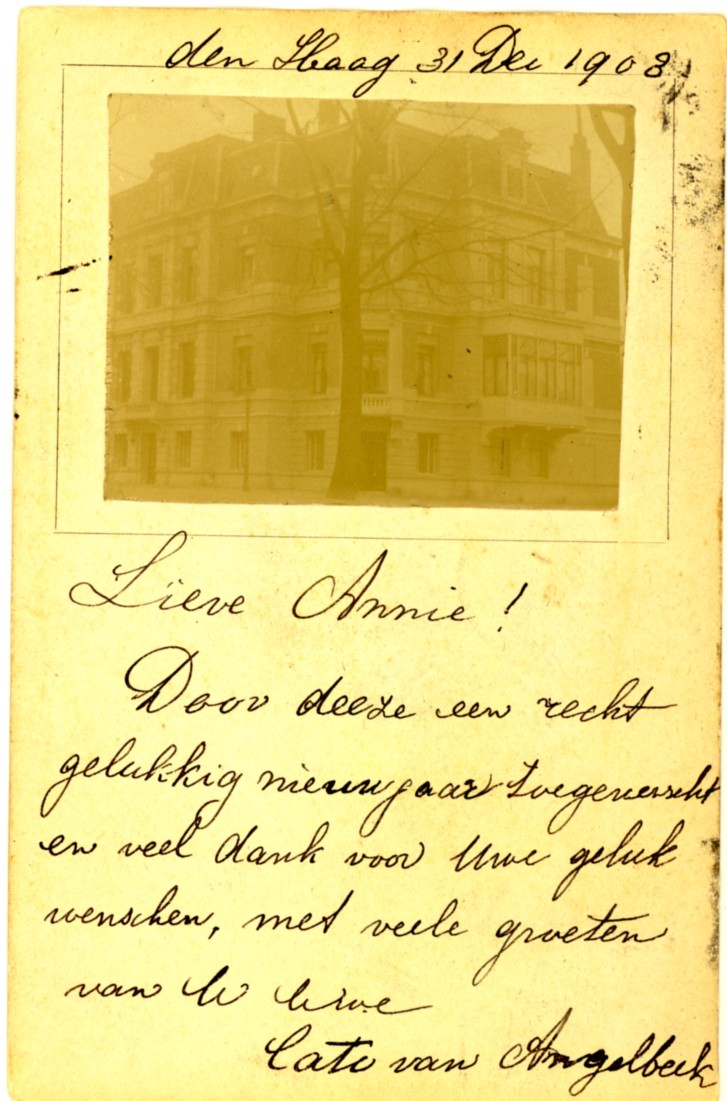 den Haag 31 Dec 1903
Lieve Annie!
Door deeze een recht
gelukkig nieuwjaar toegewenscht
en veel dank voor Uwe geluk
wenschen, met veele groeten
van U Uwe
Cato van Angelbeek